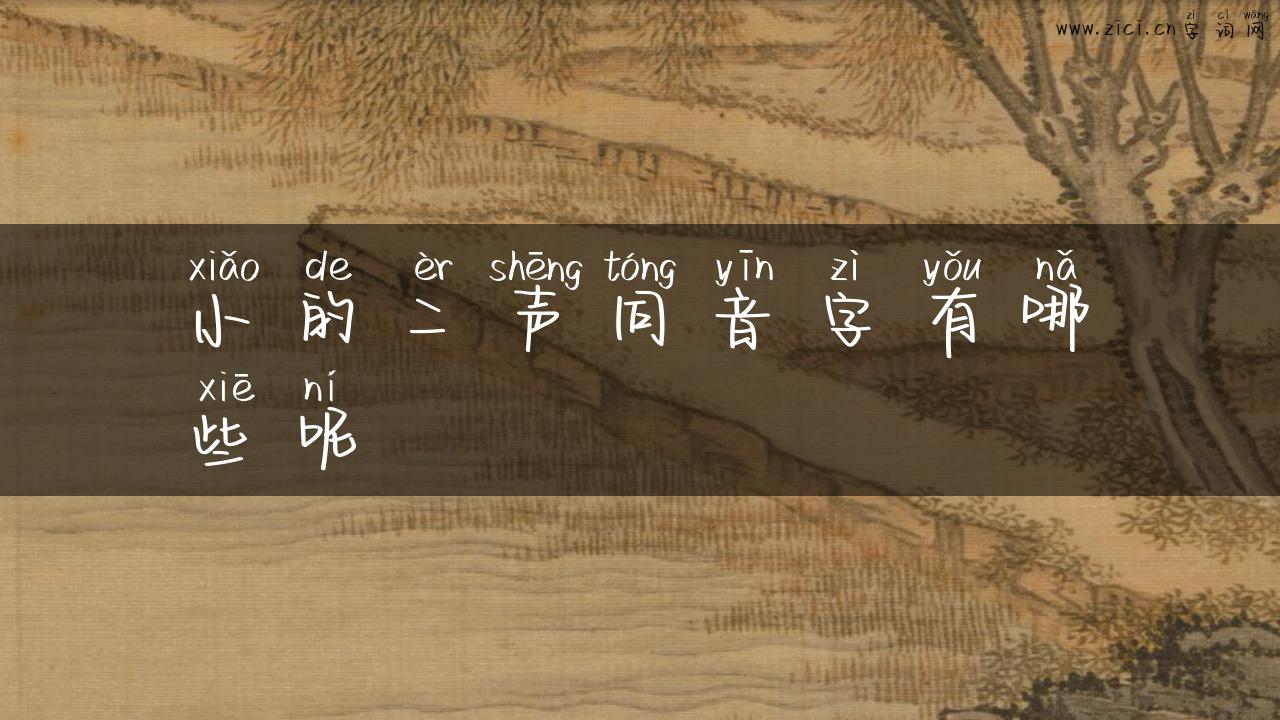 zì cí wǎng
www.zici.cn 字词网
xiǎo de èr shēng tóng yīn zì yǒu nǎ
小的二声同音字有哪
xiē ní
些呢